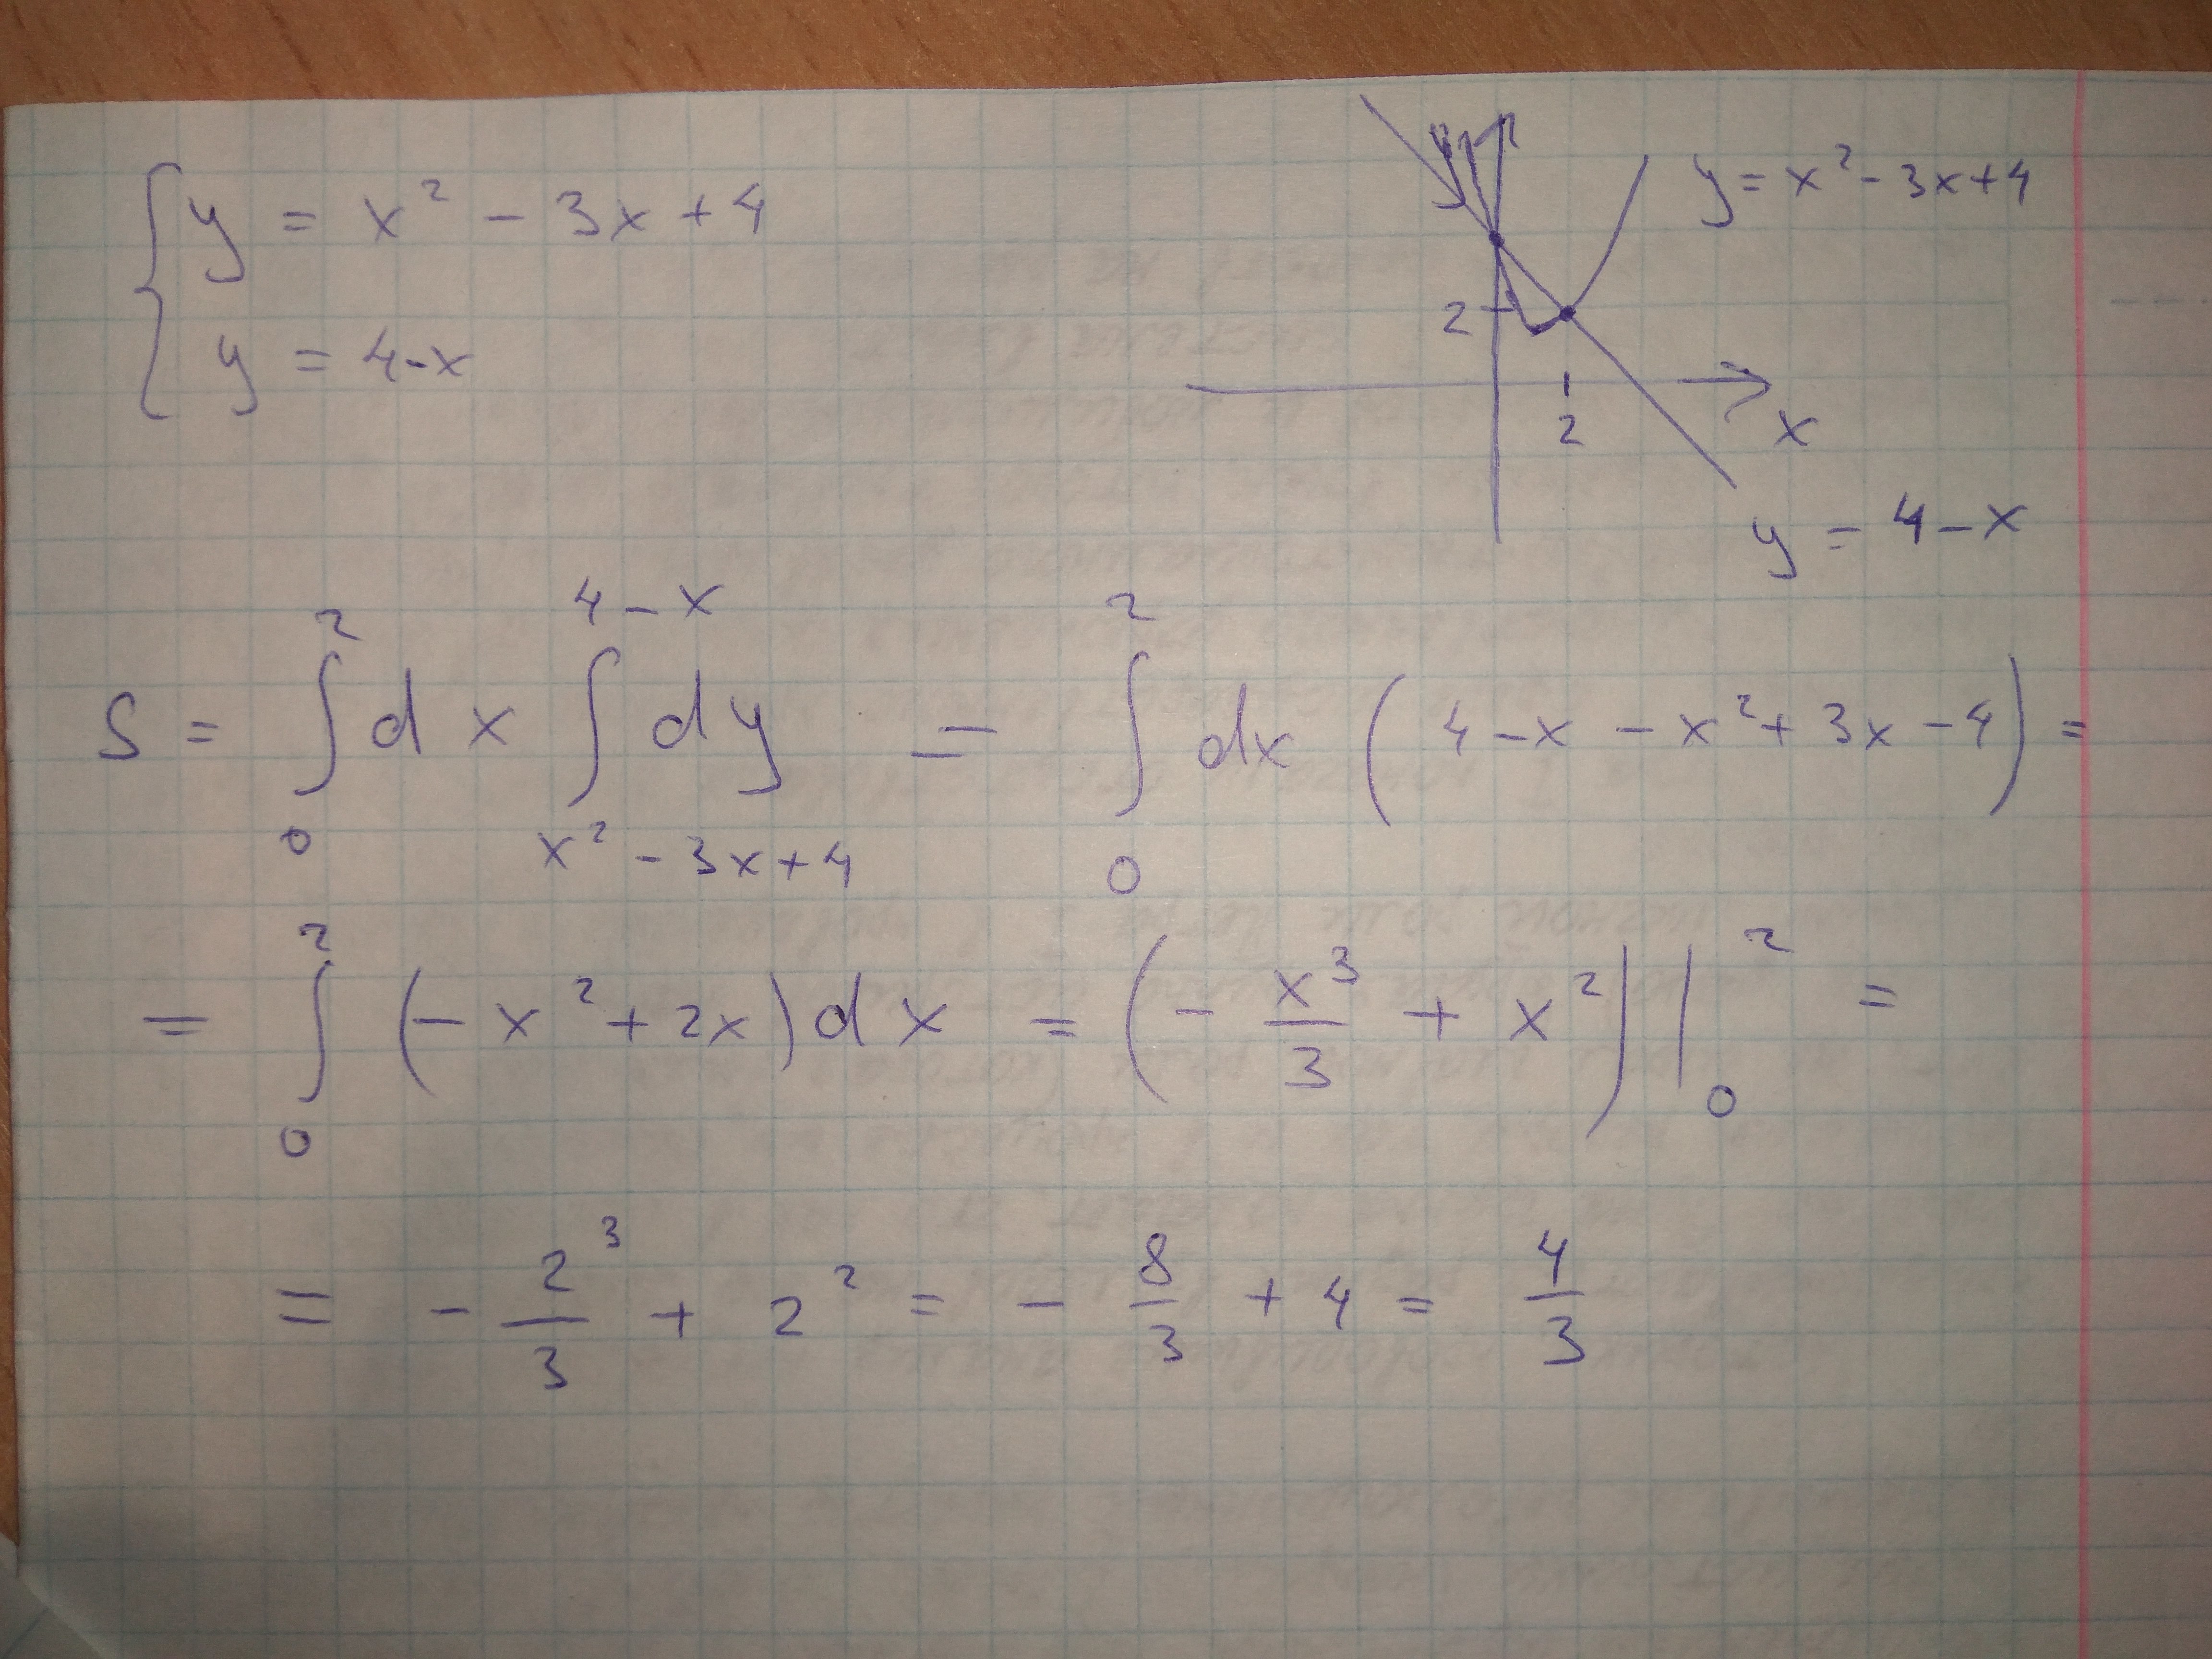 y = x² - 3x + 4
y = 4-x
y = x² - 3x + 4
2
2
x
y = 4 - x
S = ∫₀² dx ∫_{x² - 3x + 4}^{4 - x} dy = ∫₀² dx (4 - x - x² + 3x - 4) =
= ∫₀² (- x² + 2x) dx = (- x³/3 + x²) |₀² =
= - 2³/3 + 2² = - 8/3 + 4 = 4/3